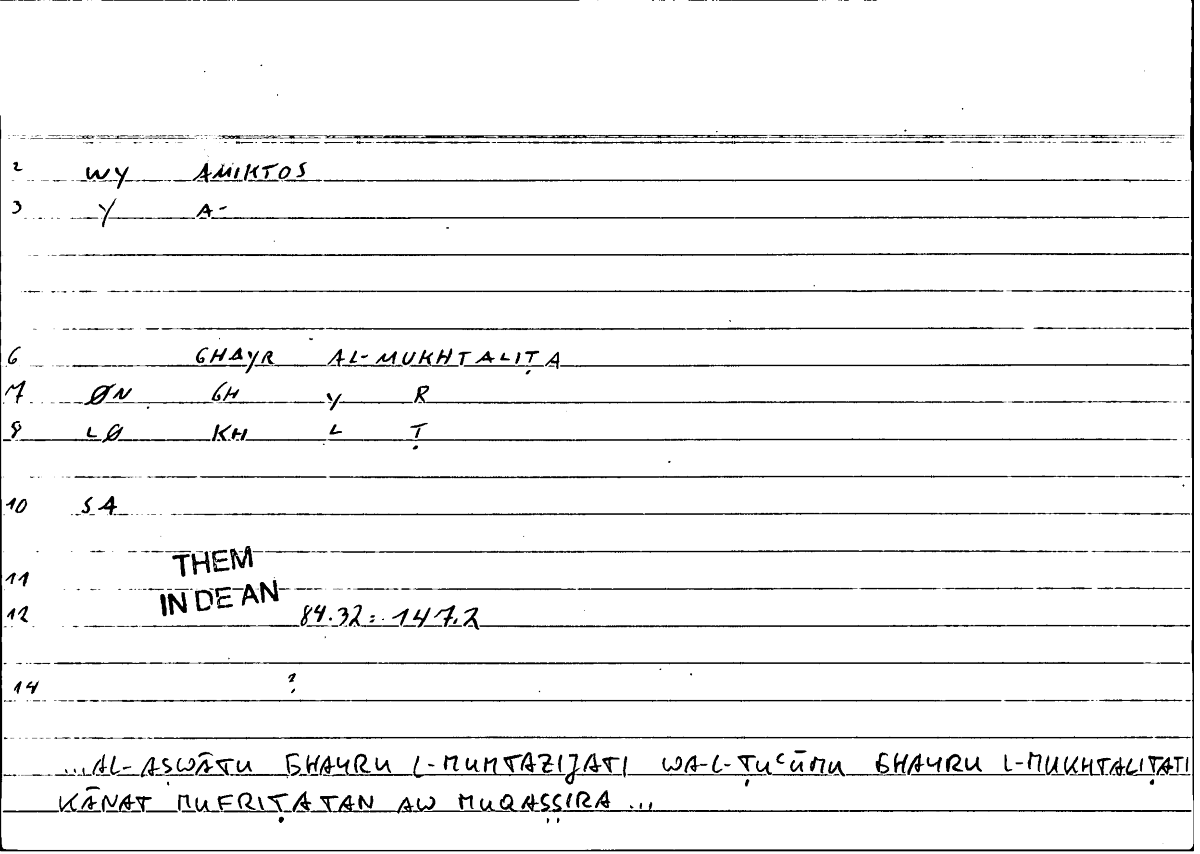 2 WY AMIKTOS
3 Y A-
6 GHAYR AL-MUKHTALIṬA
7 ØN GH Y R
8 LØ KH L Ṭ
10 SA
THEM
11
IN DE AN
12 84.32 : 147.2
14 ?
...AL-AṢWĀTU GHAYRU L-MUMTAZIJATI WA-L-ṬUʿŪMU GHAYRU L-MUKHTALIṬATI
KĀNAT MUFRIṬATAN AW MUQAṢṢIRA ...